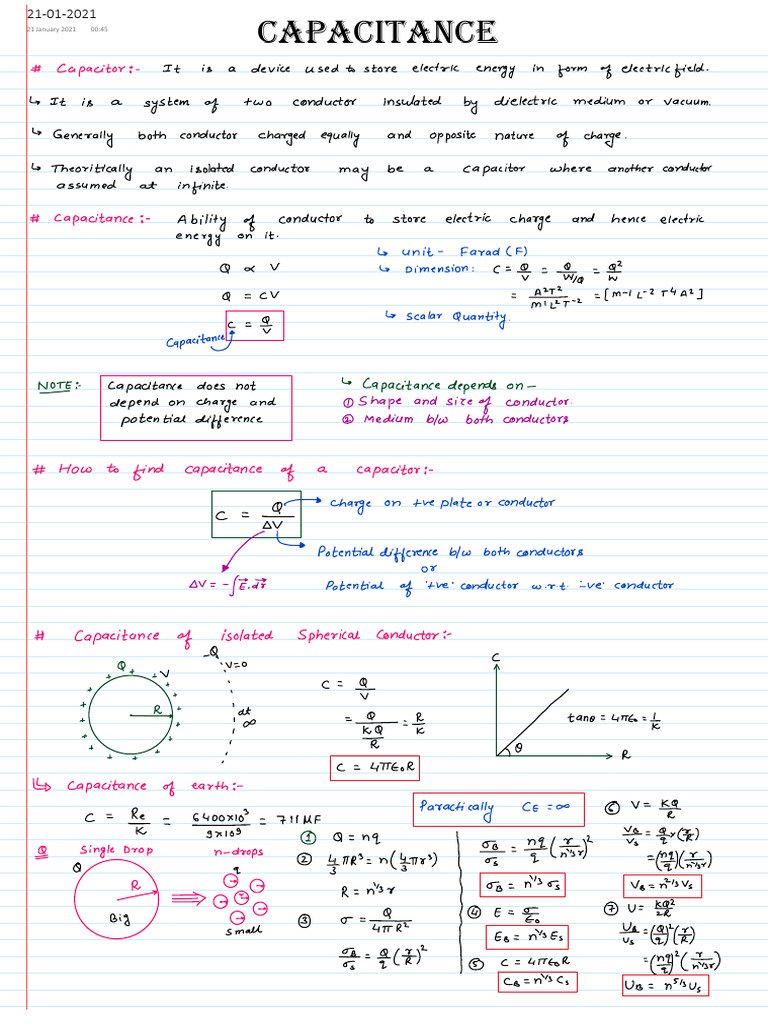 21-01-2021
21 January 2021 00:45
CAPACITANCE
# Capacitor:- It is a device used to store electric energy in form of electric field.
↳ It is a system of two conductor insulated by dielectric medium or vacuum.
↳ Generally both conductor charged equally and opposite nature of charge.
↳ Theoritically an isolated conductor may be a capacitor where another conductor
assumed at infinite.
# Capacitance:- Ability of conductor to store electric charge and hence electric
energy on it.
Q ∝ V
Q = CV
C = Q/V
Capacitance
↳ unit - Farad (F)
↳ Dimension: C = Q/V = Q/(W/Q) = Q²/W
= A²T²/M¹L²T⁻² = [M⁻¹L⁻²T⁴A²]
↳ Scalar Quantity.
NOTE:-
Capacitance does not
depend on charge and
potential difference
↳ Capacitance depends on —
① Shape and size of conductor.
② Medium b/w both conductors
# How to find capacitance of a capacitor:-
C = Q/ΔV
charge on +ve plate or conductor
Potential difference b/w both conductors
or
Potential of '+ve' conductor w.r.t. -ve' conductor
ΔV = -∫E⃗.dr⃗
# Capacitance of isolated Spherical Conductor:-
Q
V
R
-Q
V=0
at
∞
C = Q/V
= Q/(KQ/R) = R/K
C = 4πε₀R
C
tanθ = 4πε₀ = 1/K
θ
R
↳ Capacitance of earth:-
C = Re/K = 6400×10³/9×10⁹ = 711 μF
Paractically C_E = ∞
Q
Single Drop
Q
R
Big
n-drops
q
r
small
① Q = nq
② 4/3 πR³ = n(4/3 πr³)
R = n^1/3 r
③ σ = Q/4πR²
σB/σs = Q/q (r/R)²
σB/σs = nq/q (r/n^1/3r)²
σB = n^1/3 σs
④ E = σ/ε₀
EB = n^1/3 Es
⑤ C = 4πε₀R
CB = n^1/3 Cs
⑥ V = KQ/R
VB/Vs = Q/q × (r/R)
= (nq/q)(r/n^1/3r)
VB = n^2/3 Vs
⑦ U = KQ²/2R
UB/Us = (Q/q)² (r/R)
= (nq/q)² (r/n^1/3r)
UB = n^5/3 Us